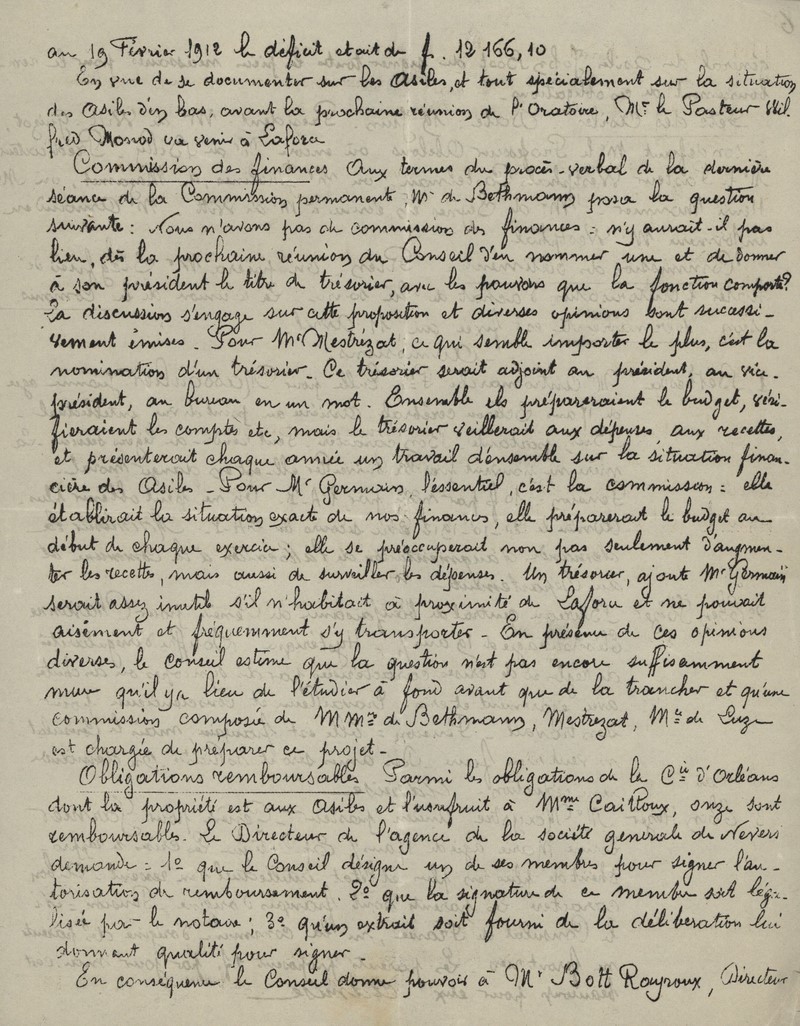 au 19 Février 1912 le déficit etait de f. 12 166,10
En vue de se documenter sur les Asiles, et tout spécialement sur la situation
des Asiles d'en bas, avant la prochaine réunion de l'Oratoire, Mr le Pasteur Wil.
fred Monod va venir à Laforce
Commission des finances Aux termes du procès-verbal de la dernière
séance de la Commission permanente, Mr de Bethmann posa la question
suivante : Nous n'avons pas de commission des finances : n'y aurait-il pas
lieu, dès la prochaine réunion du Conseil d'en nommer une et de donner
à son président le titre de trésorier, avec les pouvoirs que la fonction comporte?
La discussion s'engage sur cette proposition et diverses opinions sont successi-
vement émises. Pour Mr Mestrezat, ce qui semble importer le plus, c'est la
nomination d'un trésorier. Ce trésorier serait adjoint au président, au vice.
président, au bureau en un mot. Ensemble ils prépareraient le budget, véri-
fieraient les comptes etc, mais le trésorier veillerait aux dépenses, aux recettes,
et présenterait chaque année un travail d'ensemble sur la situation finan-
cière des Asiles - Pour Mr Germain, l'essentiel, c'est la commission : elle
établirait la situation exacte de nos finances, elle préparerait le budget au
début de chaque exercice ; elle se préoccuperait non pas seulement d'augmen-
ter les recettes, mais aussi de surveiller les dépenses. Un trésorier, ajoute Mr Germain
serait assez inutile s'il n'habitait à proximité de Laforce et ne pouvait
aisément et fréquemment s'y transporter - En présence de ces opinions
diverses, le Conseil estime que la question n'est pas encore suffisamment
mure qu'il y a lieu de l'étudier à fond avant que de la trancher et qu'une
commission composée de MMrs de Bethmann, Mestrezat, Mr de Luze
est chargée de préparer ce projet -
Obligations remboursables Parmi les obligations de la Cie d'Orléans
dont la propriété est aux Asiles et l'usufruit à Mme Cailloux, onze sont
remboursables. Le Directeur de l'agence de la société generale de Nevers
demande : 1o que le Conseil désigne un de ses membres pour signer l'au-
torisation de remboursement. 2o que la signature de ce membre soit léga-
lisée par le notaire ; 3o qu'un extrait soit fourni de la délibération lui
donnant qualité pour signer -
En conséquence le Conseil donne pouvoir à Mr Bott Rayroux, Directeur